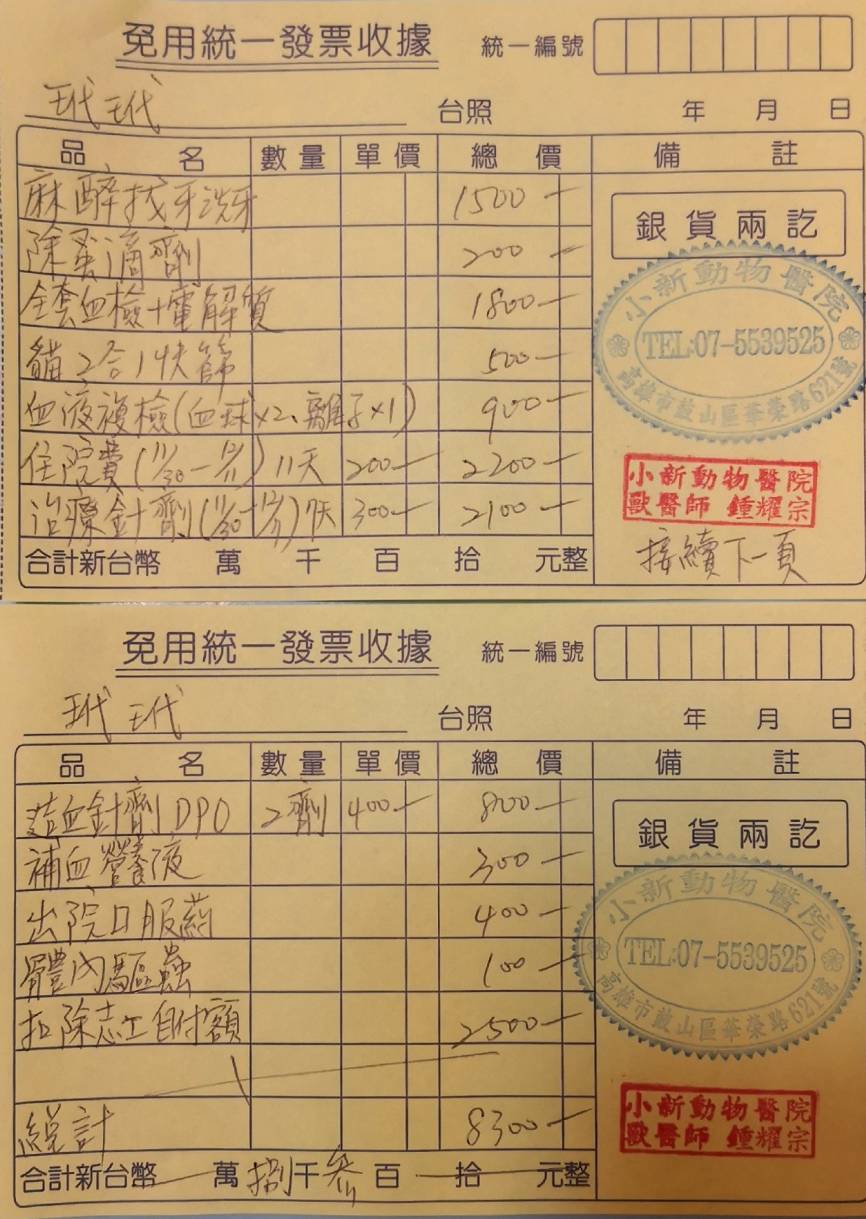 免用統一發票收據 統一編號
玳玳 台照 年 月 日
品名 數量 單價 總價 備註
麻醉拔牙洗牙 1500-
除蚤滴劑 200-
全套血檢+電解質 1800-
貓2合1快篩 500-
血液複檢(血球×2、離子×1) 900-
住院費(11/30-12/11) 11天 200- 2200-
治療針劑(11/30-12/11) 7天 300- 2100-
合計新台幣 萬 千 百 拾 元整
銀貨兩訖
小新動物醫院
TEL:07-5539525
高雄市鼓山區華榮路621號
小新動物醫院
獸醫師 鍾耀宗
接續下一頁
免用統一發票收據 統一編號
玳玳 台照 年 月 日
品名 數量 單價 總價 備註
造血針劑DPO 2劑 400- 800-
補血營養液 300-
出院口服葯 400-
體內驅蟲 100-
扣除志工自付額 2500-
總計 8300-
合計新台幣 萬 捌千 參百 拾 元整
銀貨兩訖
小新動物醫院
TEL:07-5539525
高雄市鼓山區華榮路621號
小新動物醫院
獸醫師 鍾耀宗